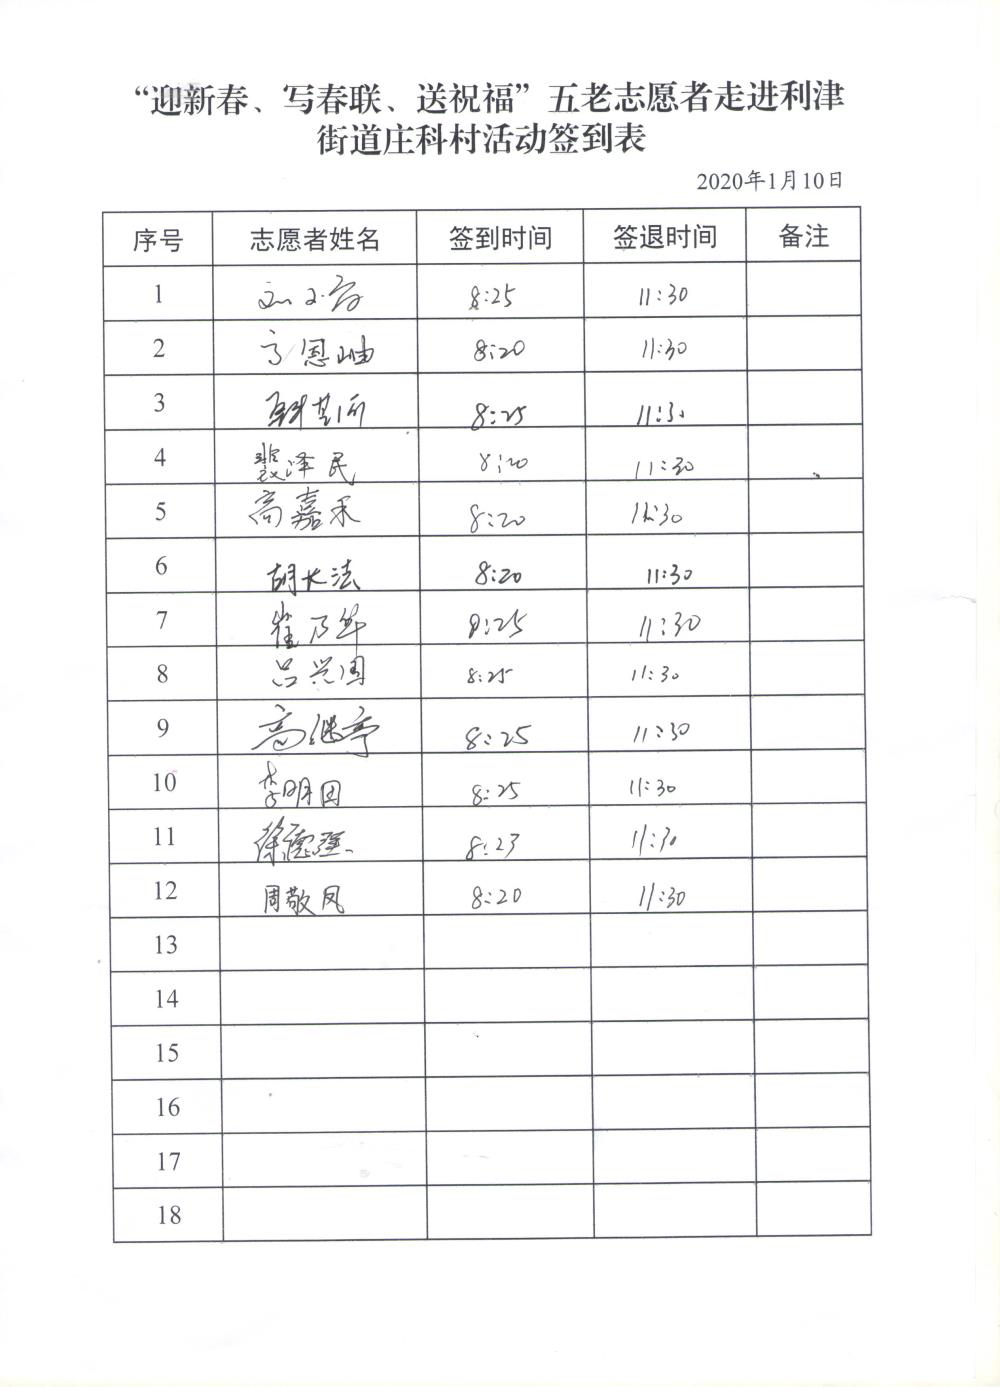 “迎新春、写春联、送祝福”五老志愿者走进利津
街道庄科村活动签到表
2020年1月10日
序号 志愿者姓名 签到时间 签退时间 备注
1 8:25 11:30
2 8:20 11:30
3 8:25 11:30
4 裴泽民 8:20 11:30
5 高嘉禾 8:20 11:30
6 胡大法 8:20 11:30
7 崔乃华 8:25 11:30
8 吕兴国 8:25 11:30
9 高继亭 8:25 11:30
10 李明田 8:25 11:30
11 徐德强 8:23 11:30
12 周敬凤 8:20 11:30
13
14
15
16
17
18